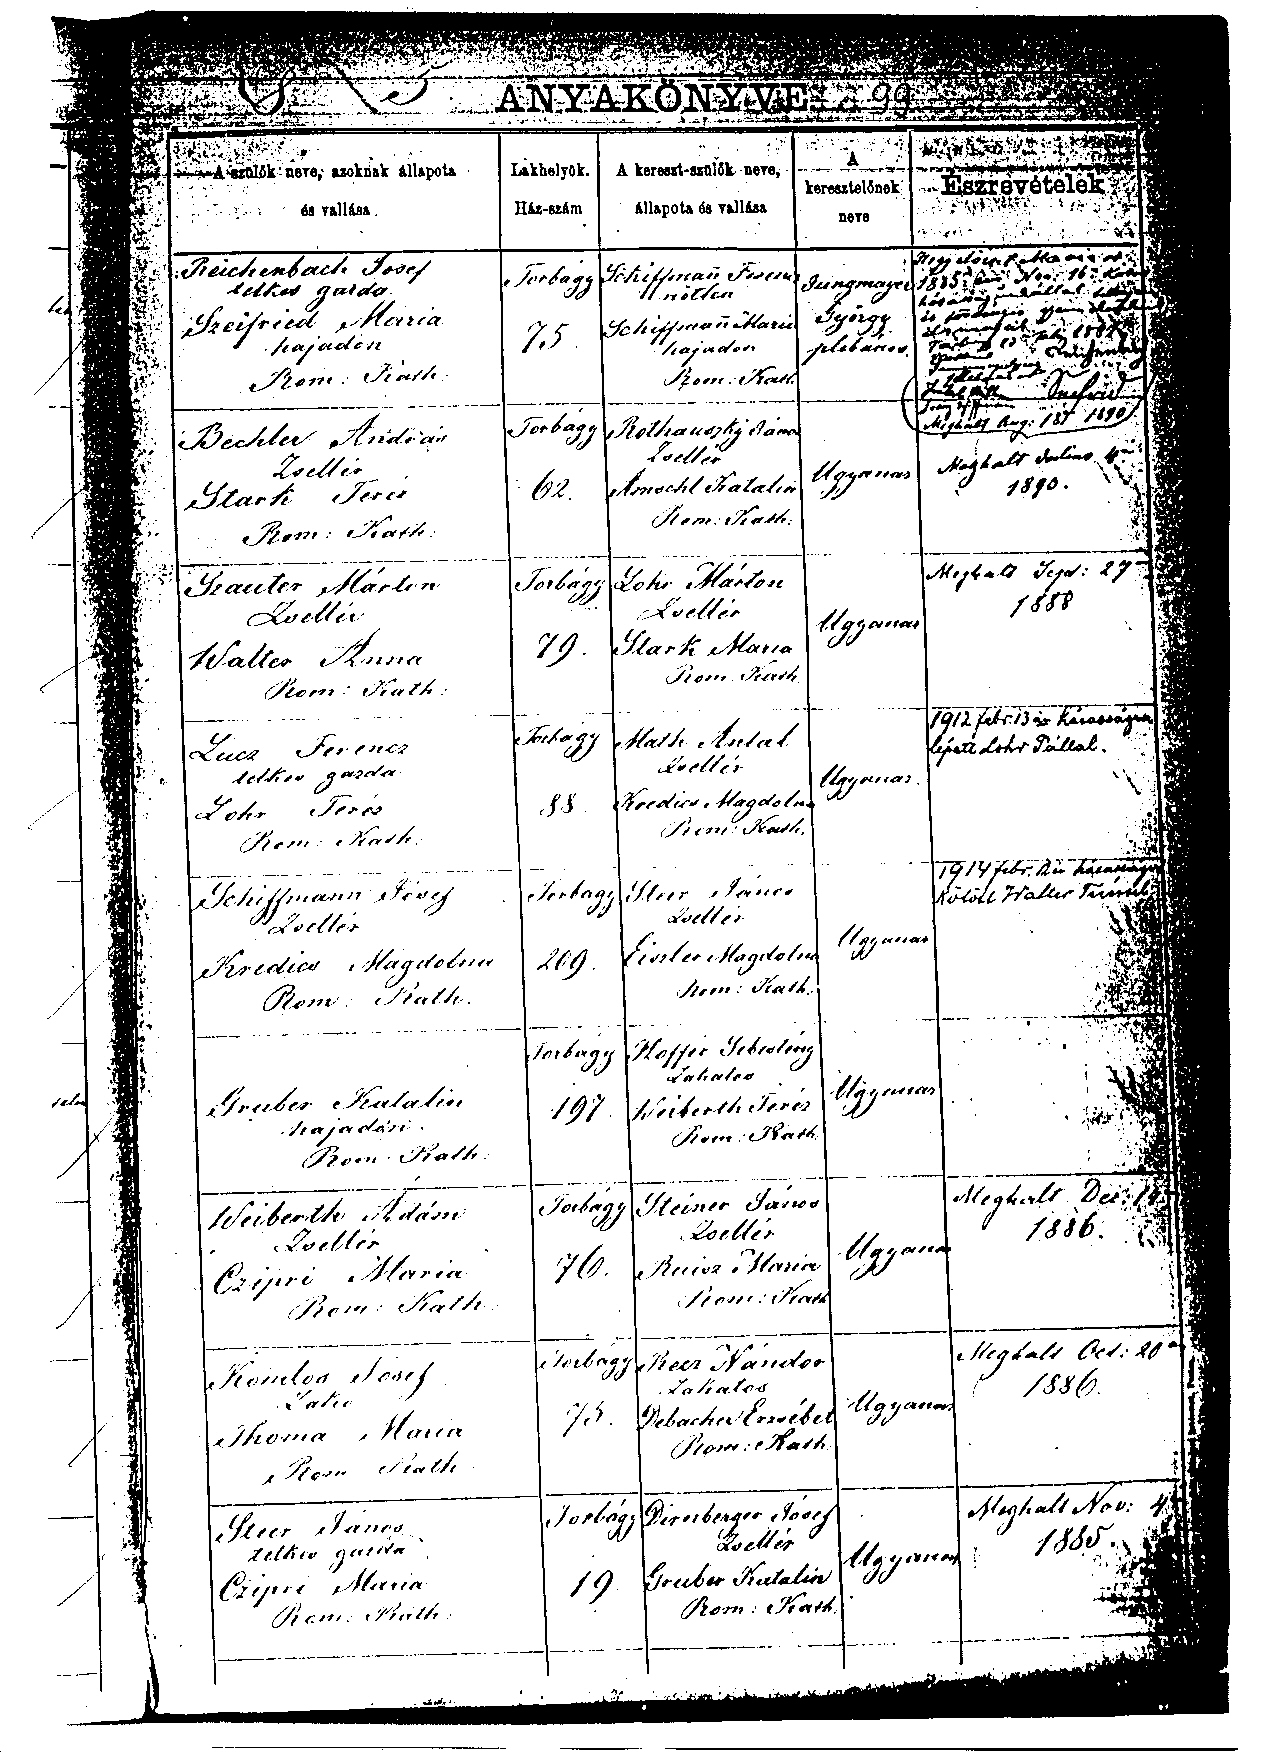 ANYAKÖNYVE 99
A szülők neve, azoknak állapota
és vallása
Lakhelyök.
Ház-szám
A kereszt-szülők neve,
állapota és vallása
A
keresztelőnek
neve
Észrevételek
Reichenbach Josef
telkes gazda
Szeifried Maria
hajadon
Rom: Kath:
Torbágy
75.
Schiffmann Ferencz
nőtlen
Schiffmann Maria
hajadon
Rom: Kath.
Jungmayer
György
plébános.
1885
Nov: 16
Meghalt Aug: 18 1890
Bechler András
Zsellér
Stark Teréz
Rom: Kath:
Torbágy
62.
Rothauszky János
Zsellér
Amschl Katalin
Rom: Kath:
Ugyanaz
Meghalt Julius 4
1890.
Szauter Márton
Zsellér
Walter Anna
Rom: Kath:
Torbágy
79.
Lohr Márton
Zsellér
Stark Maria
Rom. Kath
Ugyanaz
Meghalt Sept: 27
1888
Lucz Ferencz
telkes gazda
Lohr Teréz
Rom: Kath.
Torbágy
88.
Math Antal
Zsellér
Kredics Magdolna
Rom: Kath.
Ugyanaz.
1912 febr. 13 án házasságra
lépett Lohr Pállal.
Schiffmann József
Zsellér
Kredics Magdolna
Rom: Kath.
Torbagy
209.
Steer János
Zsellér
Eiszler Magdolna
Rom: Kath.
Ugyanaz
1914 febr.
kötött Walter
Torbágy
197.
Gruber Katalin
hajadon.
Rom. Kath.
Hoffer Sebestény
Lakatos
Weiberth Teréz
Rom: Kath
Ugyanaz
Weiberth Ádám
Zsellér
Czipri Maria
Rom: Kath.
Torbágy
76.
Steiner János
Zsellér
Maria
Rom: Kath
Ugyanaz
Meghalt Dec: 14
1886.
Komlos József
Lako
Thoma Maria
Rom Kath
Torbágy
75.
Recz Nándor
Lakatos
Debacher Erzsébet
Rom: Kath
Ugyanaz
Meghalt Oct: 20
1886.
Steer János
telkes gazda
Czipri Maria
Rom: Kath:
Torbágy
19.
Dirnberger József
Zsellér
Gruber Katalin
Rom: Kath.
Ugyanaz
Meghalt Nov: 4
1885.